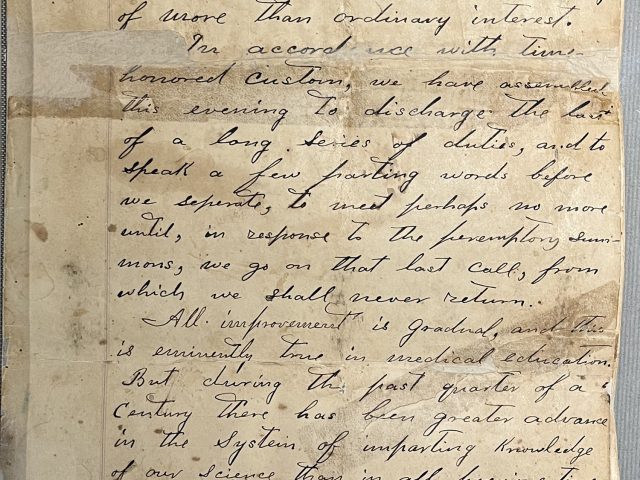 of more than ordinary interest.
In accord nce with time-
honored custom, we have assembled
this evening to discharge the last
of a long series of duties, and to
speak a few parting words before
we seperate, to meet perhaps no more
until, in response to the peremptory sum-
mons, we go on that last call, from
which we shall never return.
All improvement is gradual, and this
is eminently true in medical education.
But during the past quarter of a
Century there has been greater advance
in the System of imparting Knowledge
of our science than in all